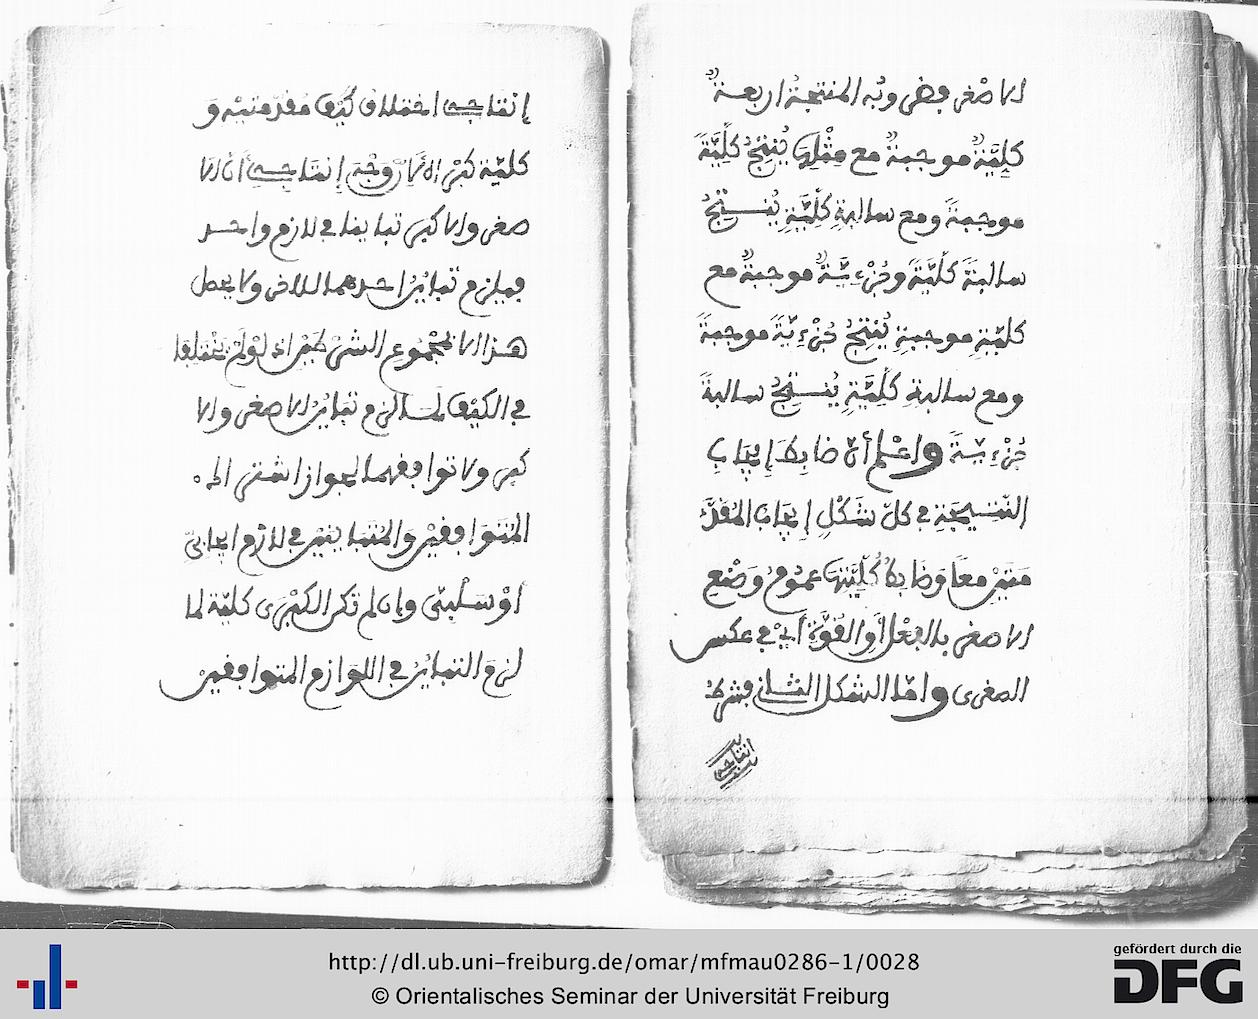 الاصغر فضروبه المنتجة اربعة
كلية موجبة مع مثلها ينتج كلية
موجبة ومع سالبة كلية ينتج
سالبة كلية وجزءية موجبة مع
كلية موجبة ينتج جزءية موجبة
ومع سالبة كلية ينتج سالبة
جزءية واعلم أن ضابط إيجاب
النتيجة في كل شكل إيجاب المقد
متين معا وضابط كليتها عموم وضع
الاصغر بالفعل أو القوة أي في عكس
الصغرى واما الشكل الثاني فشرط
انتاجه
إنتاجه اختلاف كيف مقدمتيه و
كلية كبراه لأن وجه إنتاجه أن الا
صغر والاكبر تباينا في لازم واحد
فيلزم تباين احدهما للاخر ولا يحصل
هذا الا بمجموع الشرطين اذ لو لم يختلفا
في الكيف لما لزم تباين الاصغر والا
كبر ولا توافقهما لجواز اشتراك
المتوافقين والمتباينين في لازم ايجابي
أو سلبي وإن لم تكن الكبرى كلية لما
لزم التباين في اللوازم المتوافقين
http://dl.ub.uni-freiburg.de/omar/mfmau0286-1/0028
© Orientalisches Seminar der Universität Freiburg
gefördert durch die
DFG